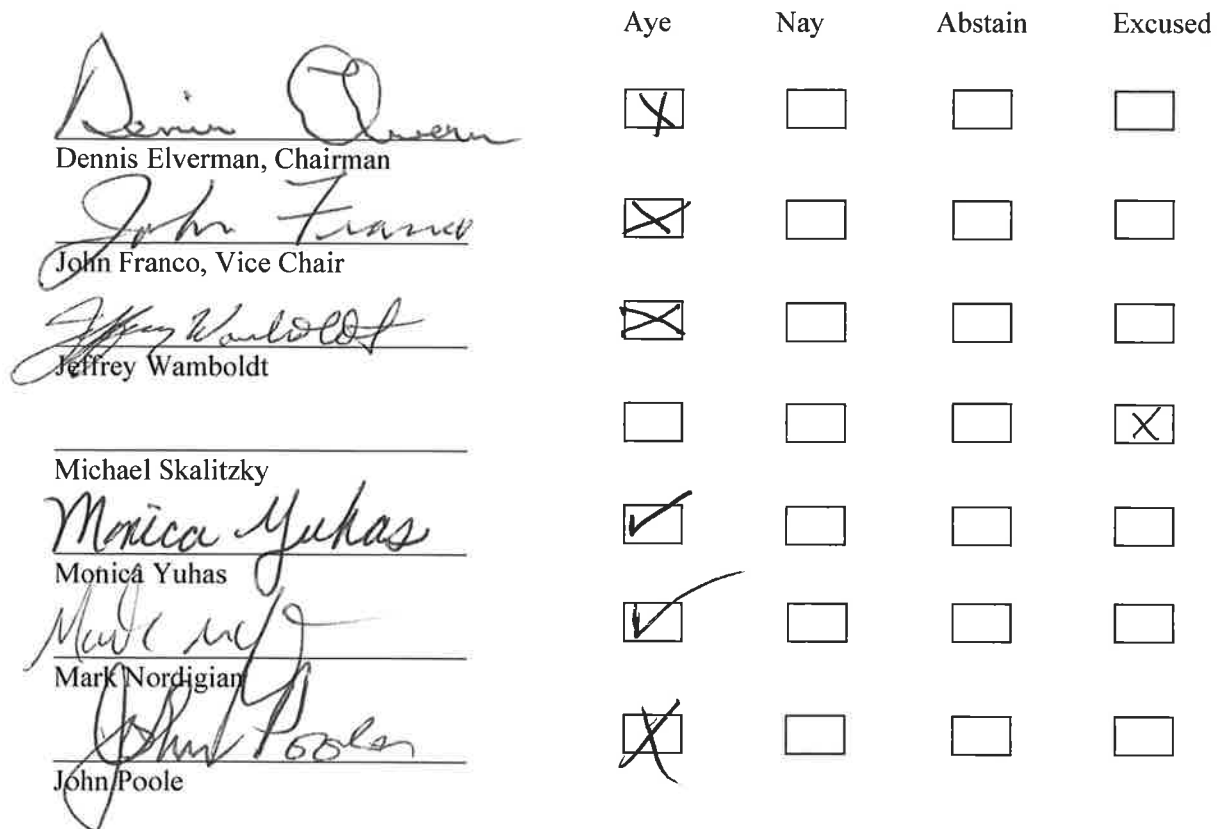 Aye Nay Abstain Excused
Dennis Elverman, Chairman
John Franco
John Franco, Vice Chair
Jeffrey Wamboldt
Jeffrey Wamboldt
Michael Skalitzky
Monica Yuhas
Monica Yuhas
Mark Nordigian
John Poole
John Poole